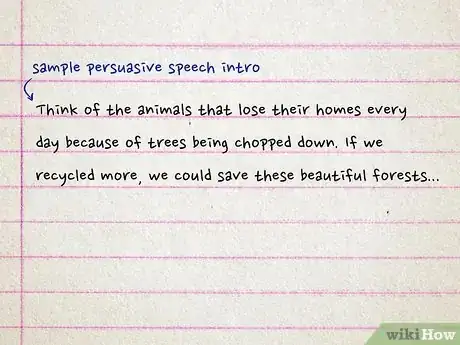 sample persuasive speech intro
Think of the animals that lose their homes every
day because of trees being chopped down. If we
recycled more, we could save these beautiful forests...
wikiHow